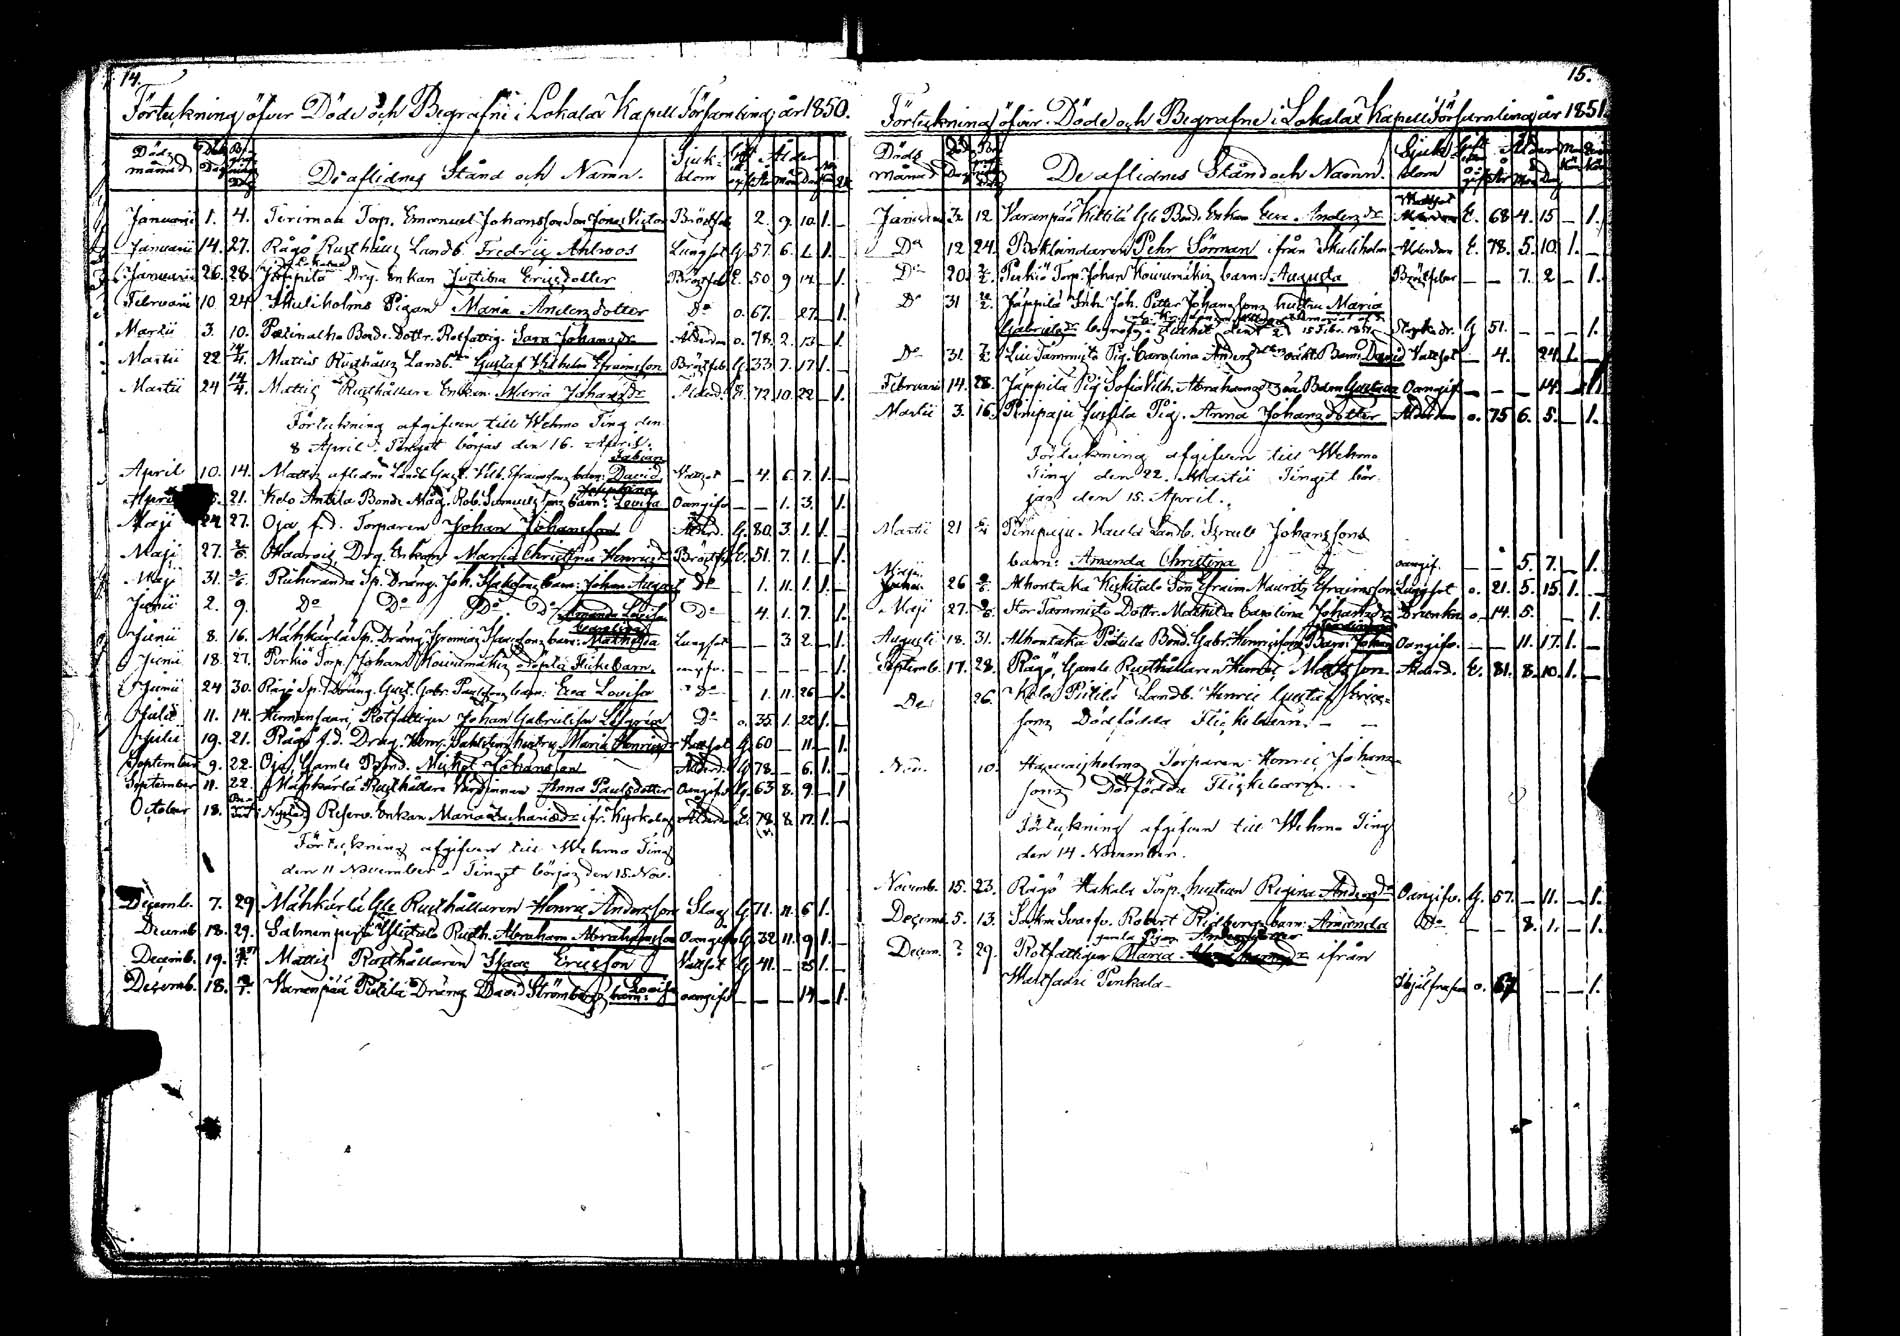 14.
Förteckning öfver Döde och Begrafne i Lokalax Kapell Församling år 1850.
Döds månad Döds Dag Begrafnings Dag De aflidnes Stånd och Namn. Sjukdom Ålder
Januarii 1. 4. Torp. Emanuel Johansson Son Jonas Victor Bröstfeb. 2. 9. 10. 1. –
Januarii 14. 27. Rågö Rusthålls Landb. Fredric Ahlroos Lungsot G. 57. 6. 1. –
Januarii 26. 28. Jäppilä Drg. Enkan Justina Ericsdotter Bröstfeb. E. 50 9 14 – 1.
Februarii 10. 24. Skuliholms Pigan Maria Andersdotter Do o. 67. – 27. – 1.
Martii 3. 10. Bonde Dottr. Rotfattig. Sara Johansdr Ålderdom o. 78. 2. 13 – 1.
Martii 22 14/4. Mattis Rusthålls Landb. Gustaf Wilhelm Efraimsson Bröstfeb. G. 33. 7. 17. 1. –
Martii 24 14/4. Mattis Rusthållare Enkan Maria Johansdr Ålderd. E. 72 10 22 – 1.
Förteckning afgifven till Wehmo Ting den
8 April. Tinget börjas den 16. April.
Fabian
April 10. 14. Mattis aflidne Landb. Gust. Vilh. Efraimssons barn: David Vattsot – 4. 6. 7. 1. –
Josephina
21. Kolo Anttila Bonde Måg. Rob. Samuelssons barn: Lovisa Oangifv. – – 1. 3. – 1.
Maji 24 27. Oja f.d. Torparen Johan Johansson Ålderd. G. 80. 3. 1. 1. –
Maji 27. Haarois Drg. Enkan Maria Christina Henricsdr Bröstfeb. E. 51. 7. 1. – 1.
Maj 31. Sp. Dräng. Joh. Isakssons barn: Johan August Do – 1. 11. 1. 1. –
Junii 2. 9. Do Do Do Do Amanda Lovisa Do – 4. 1. 7. – 1.
Carolina
Junii 8. 16. Mähkärlä Sp. Dräng Jeremias Isaacssons barn: Mathilda Lungsot – – 3 2. – 1.
Junii 18. 27. Perkiö Torp. Johan Koivumäkis odöpta Flickebarn. oangifv. – – – – – 1.
Junii 24 30. Rågö Sp. Dräng. Gust. Gabr. Paulssons barn: Eva Lovisa Do – 1. 11. 26 – 1.
Julii 11. 14. Hermansaari, Rotfattigen Johan Gabrielsson Do o. 35. 1. 22 1. –
Julii 19. 21. Rågö f.d. Dräg. Henr. hustru Maria Henricsdr Vattsot G. 60 – 11. – 1.
September 9. 22. Oja, Gamle Bond. Michel Johansson Ålderd. G. 78. – 6. 1. –
September 11. 22. Mähkärlä Rusthållare Värdinnan Anna Paulsdotter Oangifv. G. 63 8. 9. – 1
October 18. Nystad Reserv. Enkan Maria Zachrisdr ifr. Kyrkoby Ålderdom E. 78. 8. 17. 1. –
Förteckning afgifven till Wehmo Ting
den 11 November. Tinget börjas den 15. Nov.
Decemb. 7. 29. Mähkärlä Gle Rusthållaren Henric Andersson Slag G. 71. 11. 6 1.
Decemb 18. 29. Salmenpejs Ylistalo Rusth. Abraham Abrahamsson Oangifv. G. 32 11. 9. 1.
Decemb. 19. Mattis Rusthållaren Isaac Ericsson Vattsot G. 41. – 25 1. –
Decemb. 18. Varanpää Pietilä Dräng David Strömbergs barn: Lovisa oangifv. – – – 14 – 1.
15.
Förteckning öfver Döde och Begrafne i Lokalax Kapell Församling år 1851.
Döds månad De aflidnes Stånd och Namn. Sjukdom Ålder
Januarii 3. 12 Varanpää Kettilä Gle Bonde Enkan Eva Andersdr Vattsot E. 68 4. 15 – 1.
Do 12 24. Boklandaren Pehr Sörman ifrån Skuliholm Ålderdom E. 78. 5. 10. 1. –
Do 20. 2/2. Perkiö Torp. Johan Koivumäkis barn: Augusta Bröstfeber – – 7. 2 – 1.
Do 31 Jäppilä Inh. Joh. Petter Johanssons hustru Maria
Gabrielsdr G 51. – – – 1.
Do 31. Lill Tammisto Pig. Carolina Andersdotters oäkt. Barn David Vattsot – 4. – 24. 1. –
Februarii 14. 28. Jäppilä Pig. Sofia Vilh. Abrahamsdrs oä. Barn Gustava Oangif. – – – 14. – 1.
Martii 3. 16. Penipaju Jussila Pig. Anna Johansdotter Ålderdom o. 75 6. 5. – 1.
Förteckning afgifven till Wehmo
Ting den 22. Martii Tinget bör-
jar den 15. April.
Martii 21 Penipaju Landb. Israel Johanssons
barn: Amanda Christina oangif. – – 5. 7. – 1.
Maji 26 Ahontaka Keskitalo Son Efraim Mauritz Efraimsson Lungsot o. 21. 5. 15 1.
Maji 27. Stor Tammisto Dottr. Mathilda Carolina Johansdr o. 14. 5. – 1.
Augusti 18. 31. Ahontaka Pietula Bond. Gabr. Henricssons Barn: Johan Oangifv. – – 11. 17. 1. –
Septemb. 17. 28. Rågö, Gamle Rusthållaren Henric Mattsson Ålderd. E. 81. 8. 10. 1. –
Do 26. Kolo Pietilä Landb. Henric Gustaf Erics-
sons Dödfödda Flickebarn. – –
Nov. 10. Torparen Henric Johans-
sons Dödfödda Flickebarn. –
Förteckning afgifven till Wehmo Ting
den 14 November.
Novemb. 15. 23. Rågö Hakala Torp. hustrun Regina Andersdr Oangifv. G. 57. – 11. – 1.
Decemb. 5. 13. Robert barn: Amanda Do – – 8. 1. – 1.
Decem. ? 29. Rotfattigen Maria ifrån
Wartsaari Penkala – Ihjälfrusen o. 67 – – 1.